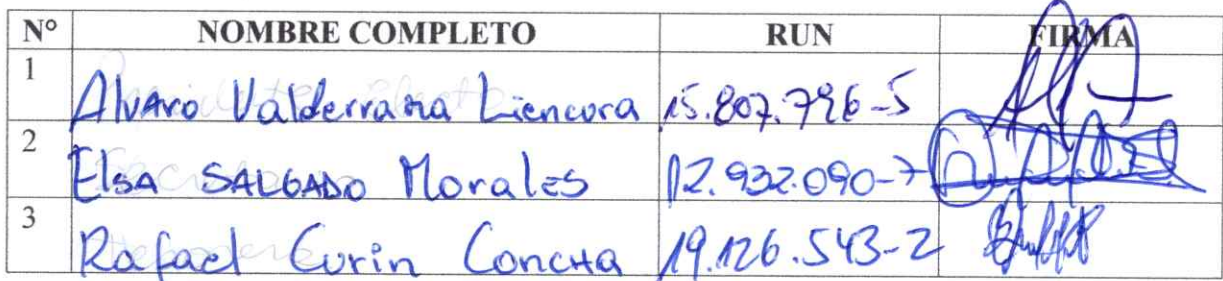 N° NOMBRE COMPLETO RUN FIRMA
1 Alvaro Valderrama Liencura 15.807.796-5
2 Elsa SALGADO Morales 12.932.090-7
3 Rafael Curin Concha 19.126.543-2